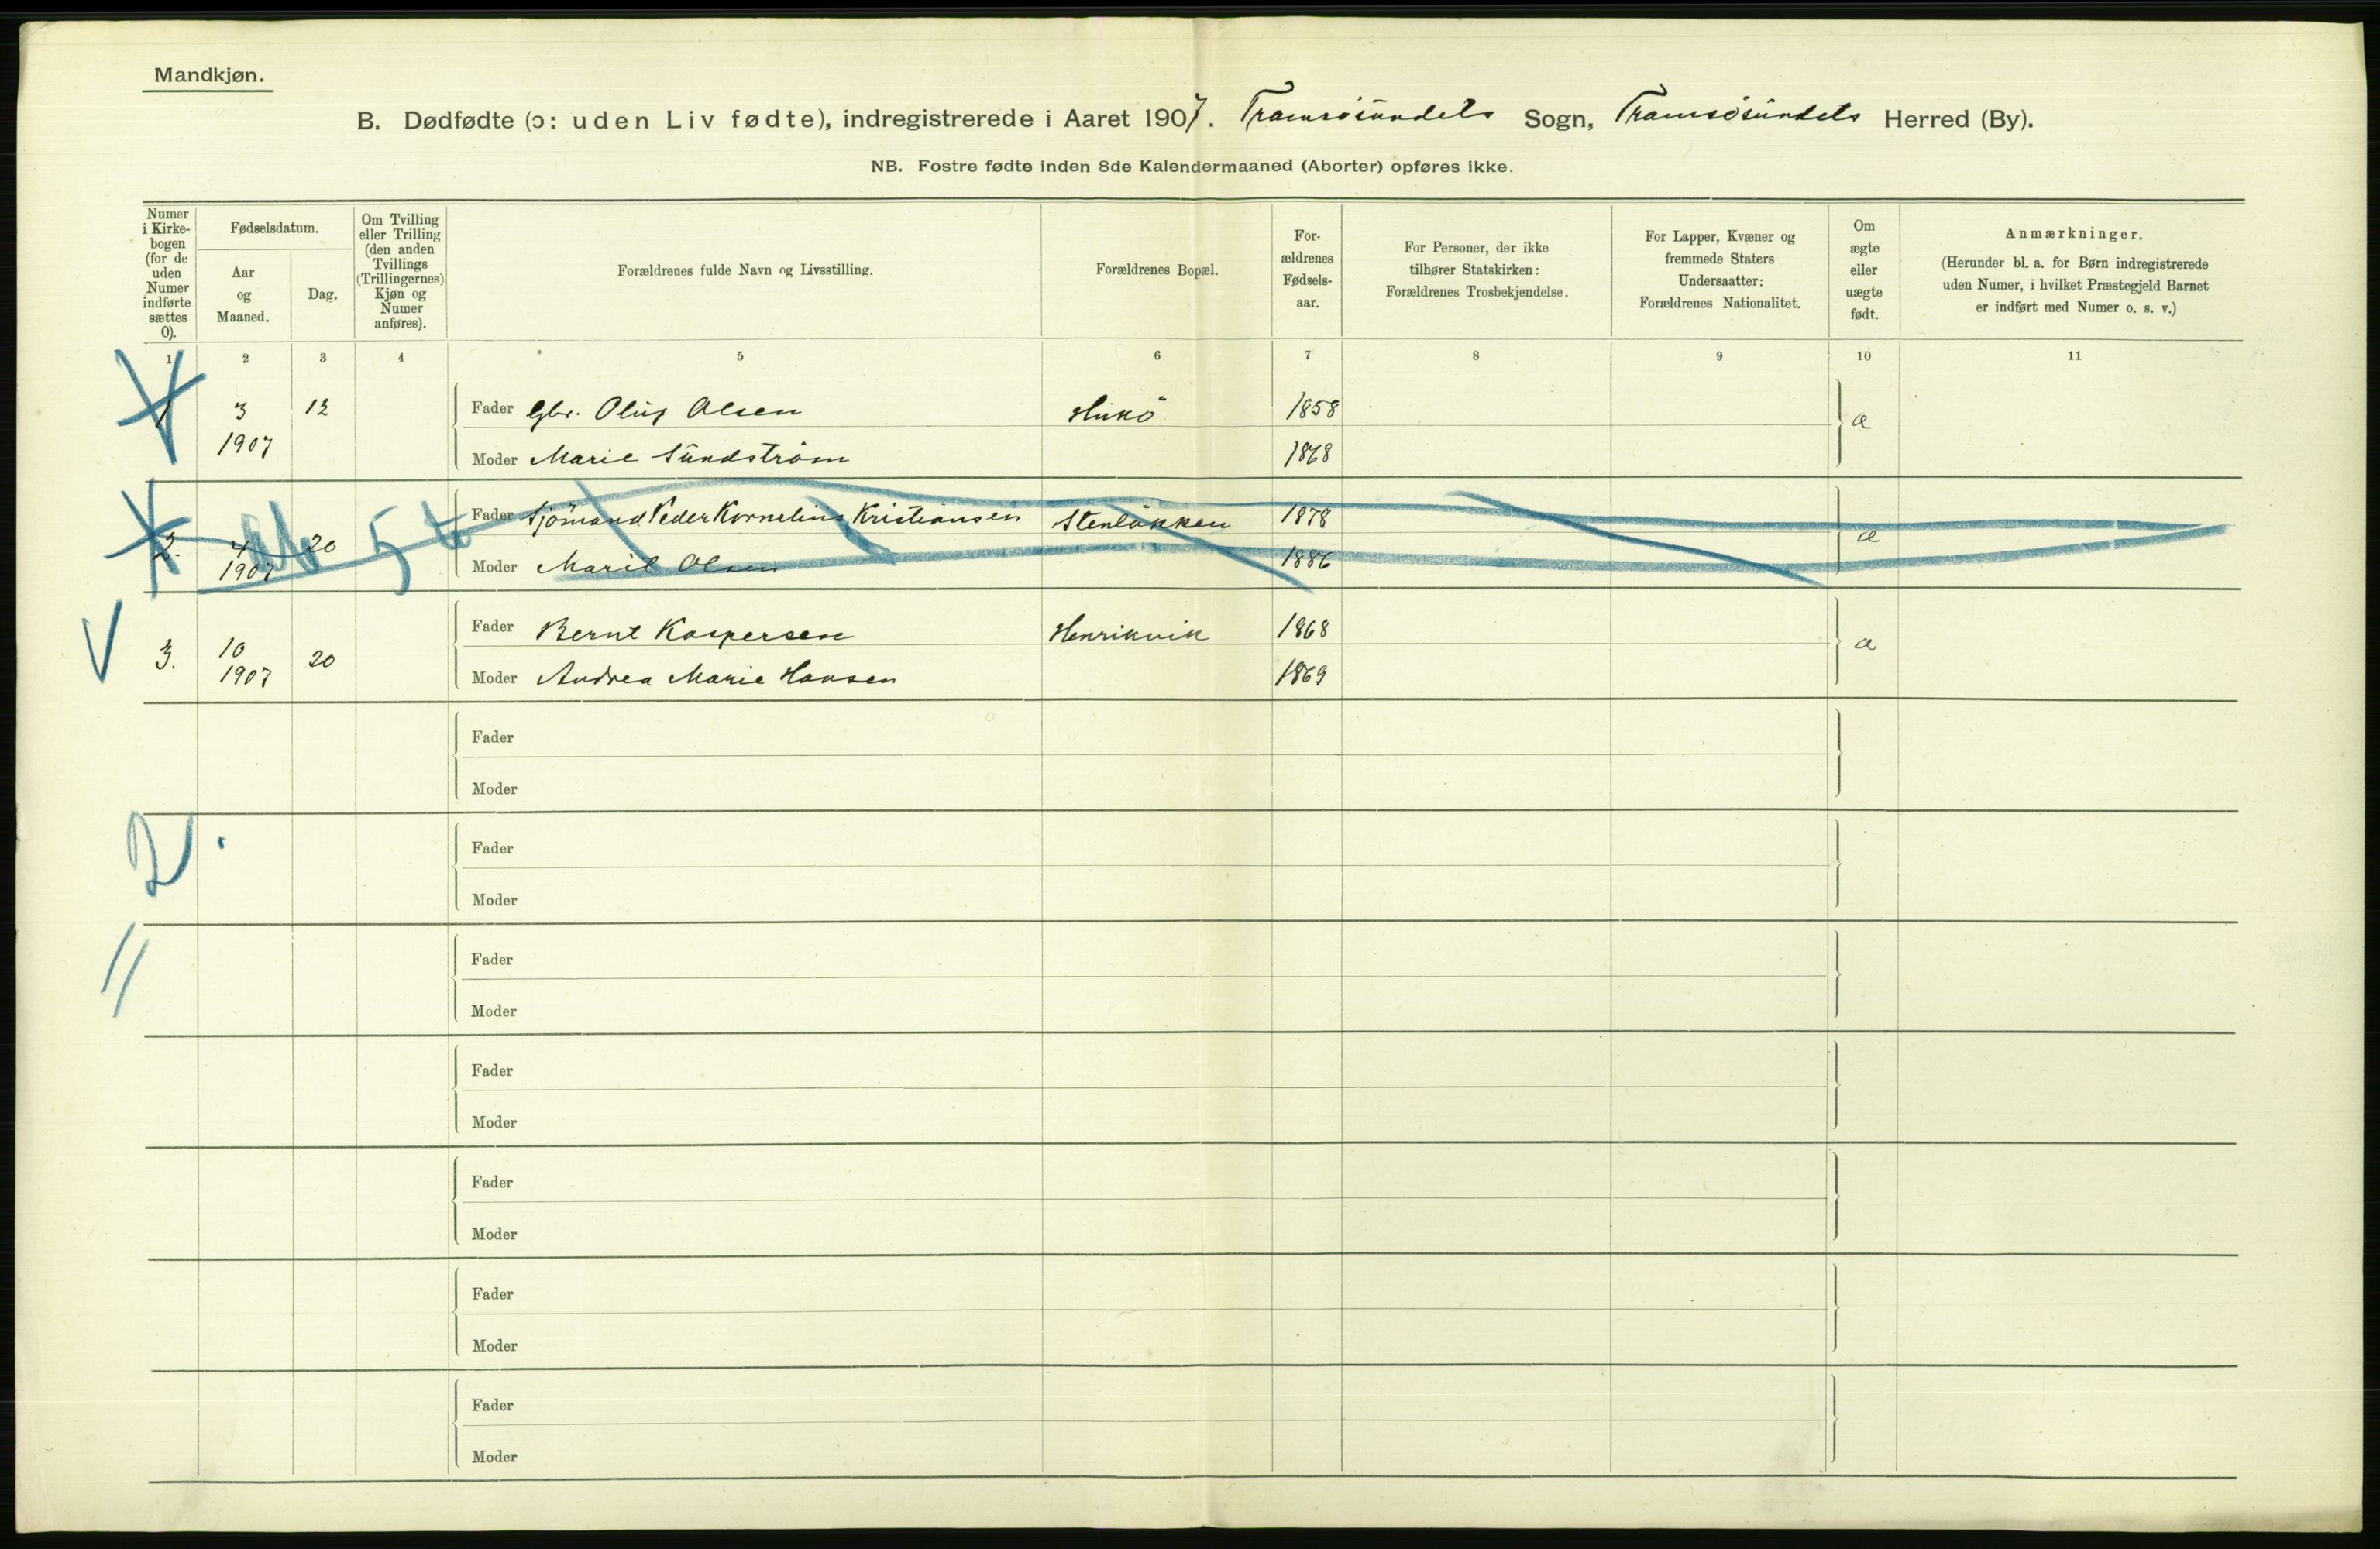 Mandkjøn.
B. Dødfødte (ɔ: uden Liv fødte), indregistrerede i Aaret 1907. Tromsøsundets Sogn, Tromsøsundets Herred (By).
NB. Fostre fødte inden 8de Kalendermaaned (Aborter) opføres ikke.
Numer i Kirke-bogen (for de uden Numer indførte sættes 0).
Fødselsdatum.
Aar og Maaned.
Dag.
Om Tvilling eller Trilling (den anden Tvillings (Trillingernes) Kjøn og Numer anføres).
Forældrenes fulde Navn og Livsstilling.
Forældrenes Bopæl.
For-ældrenes Fødsels-aar.
For Personer, der ikke tilhører Statskirken: Forældrenes Trosbekjendelse.
For Lapper, Kvæner og fremmede Staters Undersaatter: Forældrenes Nationalitet.
Om ægte eller uægte født.
Anmærkninger.
(Herunder bl. a. for Børn indregistrerede uden Numer, i hvilket Præstegjeld Barnet er indført med Numer o. s. v.)
1 2 3 4 5 6 7 8 9 10 11
1 3 12 Fader Gbr. Oluf Olsen 1858 æ
1907 Moder Marie Sundström 1868
2. 4 20 Fader Sjömand Peder Kornelius Kristiansen Stenløkken 1878 æ
1907 Moder Marit Olsen 1886
3. 10 20 Fader Bernt Kaspersen Henrikvik 1868 æ
1907 Moder Andrea Marie Hansen 1869
Fader
Moder
2.
Fader
Moder
Fader
Moder
Fader
Moder
Fader
Moder
Fader
Moder
Fader
Moder